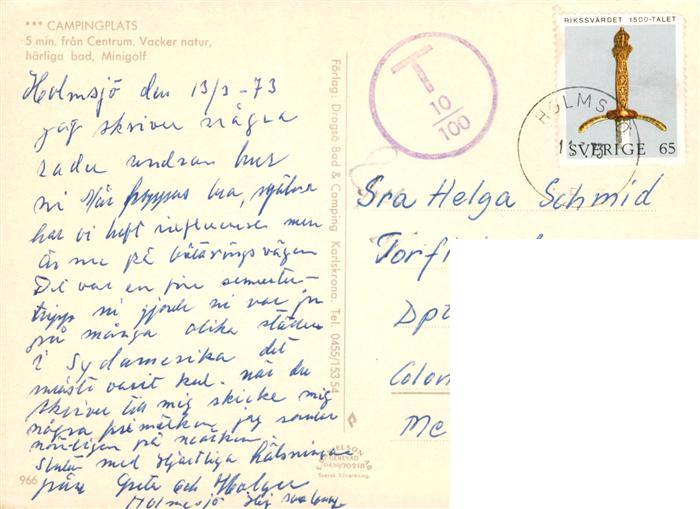 *** CAMPINGPLATS
5 min. från Centrum. Vacker natur,
härliga bad, Minigolf
Holmsjö den 13/3-73
jag skriver några
rader undran hur
ni mår hoppas bra, själva
har vi haft influensa men
är nu på bättrings vägen
Det var en fin semester-
tripp ni gjorde ni var ju
på många olika städer
i Sydamerika det
måste varit kul. när du
skriver till mig skicka mig
några frimärken jag samlar
nämligen på märken
Slutar med Hjärtliga hälsningar
från Greta och Holger
Holmsjö
966
Förlag: Dragsö Bad & Camping Karlskrona. Tel. 0455/153 54
T
10/100
HOLMSJÖ
RIKSSVÄRDET 1500-TALET
SVERIGE 65
Sra Helga Schmid
Dpt
Colon
Svensk tillverkning